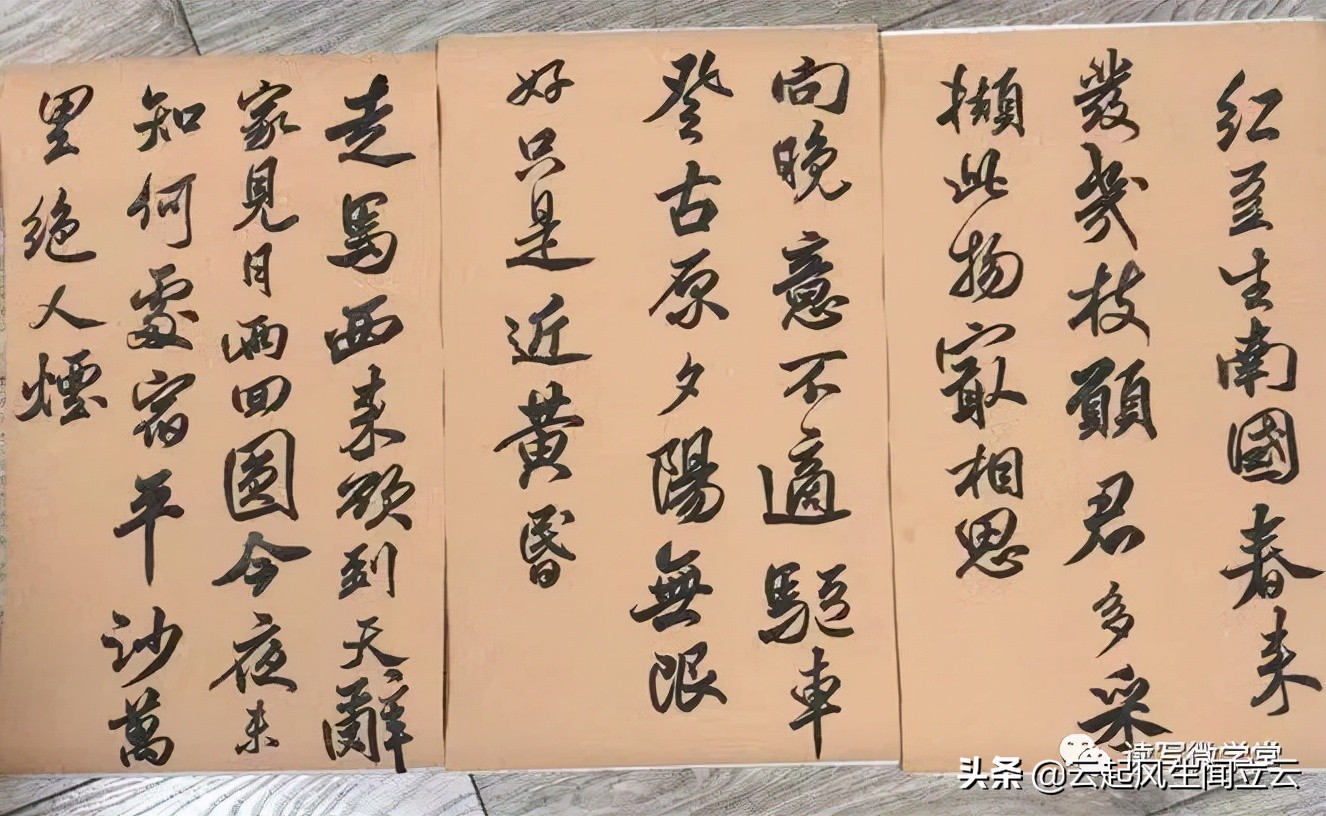 红豆生南國春来
發幾枝願君多采
擷此物最相思
向晚意不適駈車
登古原夕陽無限
好只是近黄昬
走馬西来欲到天辭
家見月兩回圓今夜未
知何處宿平沙萬
里絶人煙
读写微学堂
头条 @云起风生闻立云